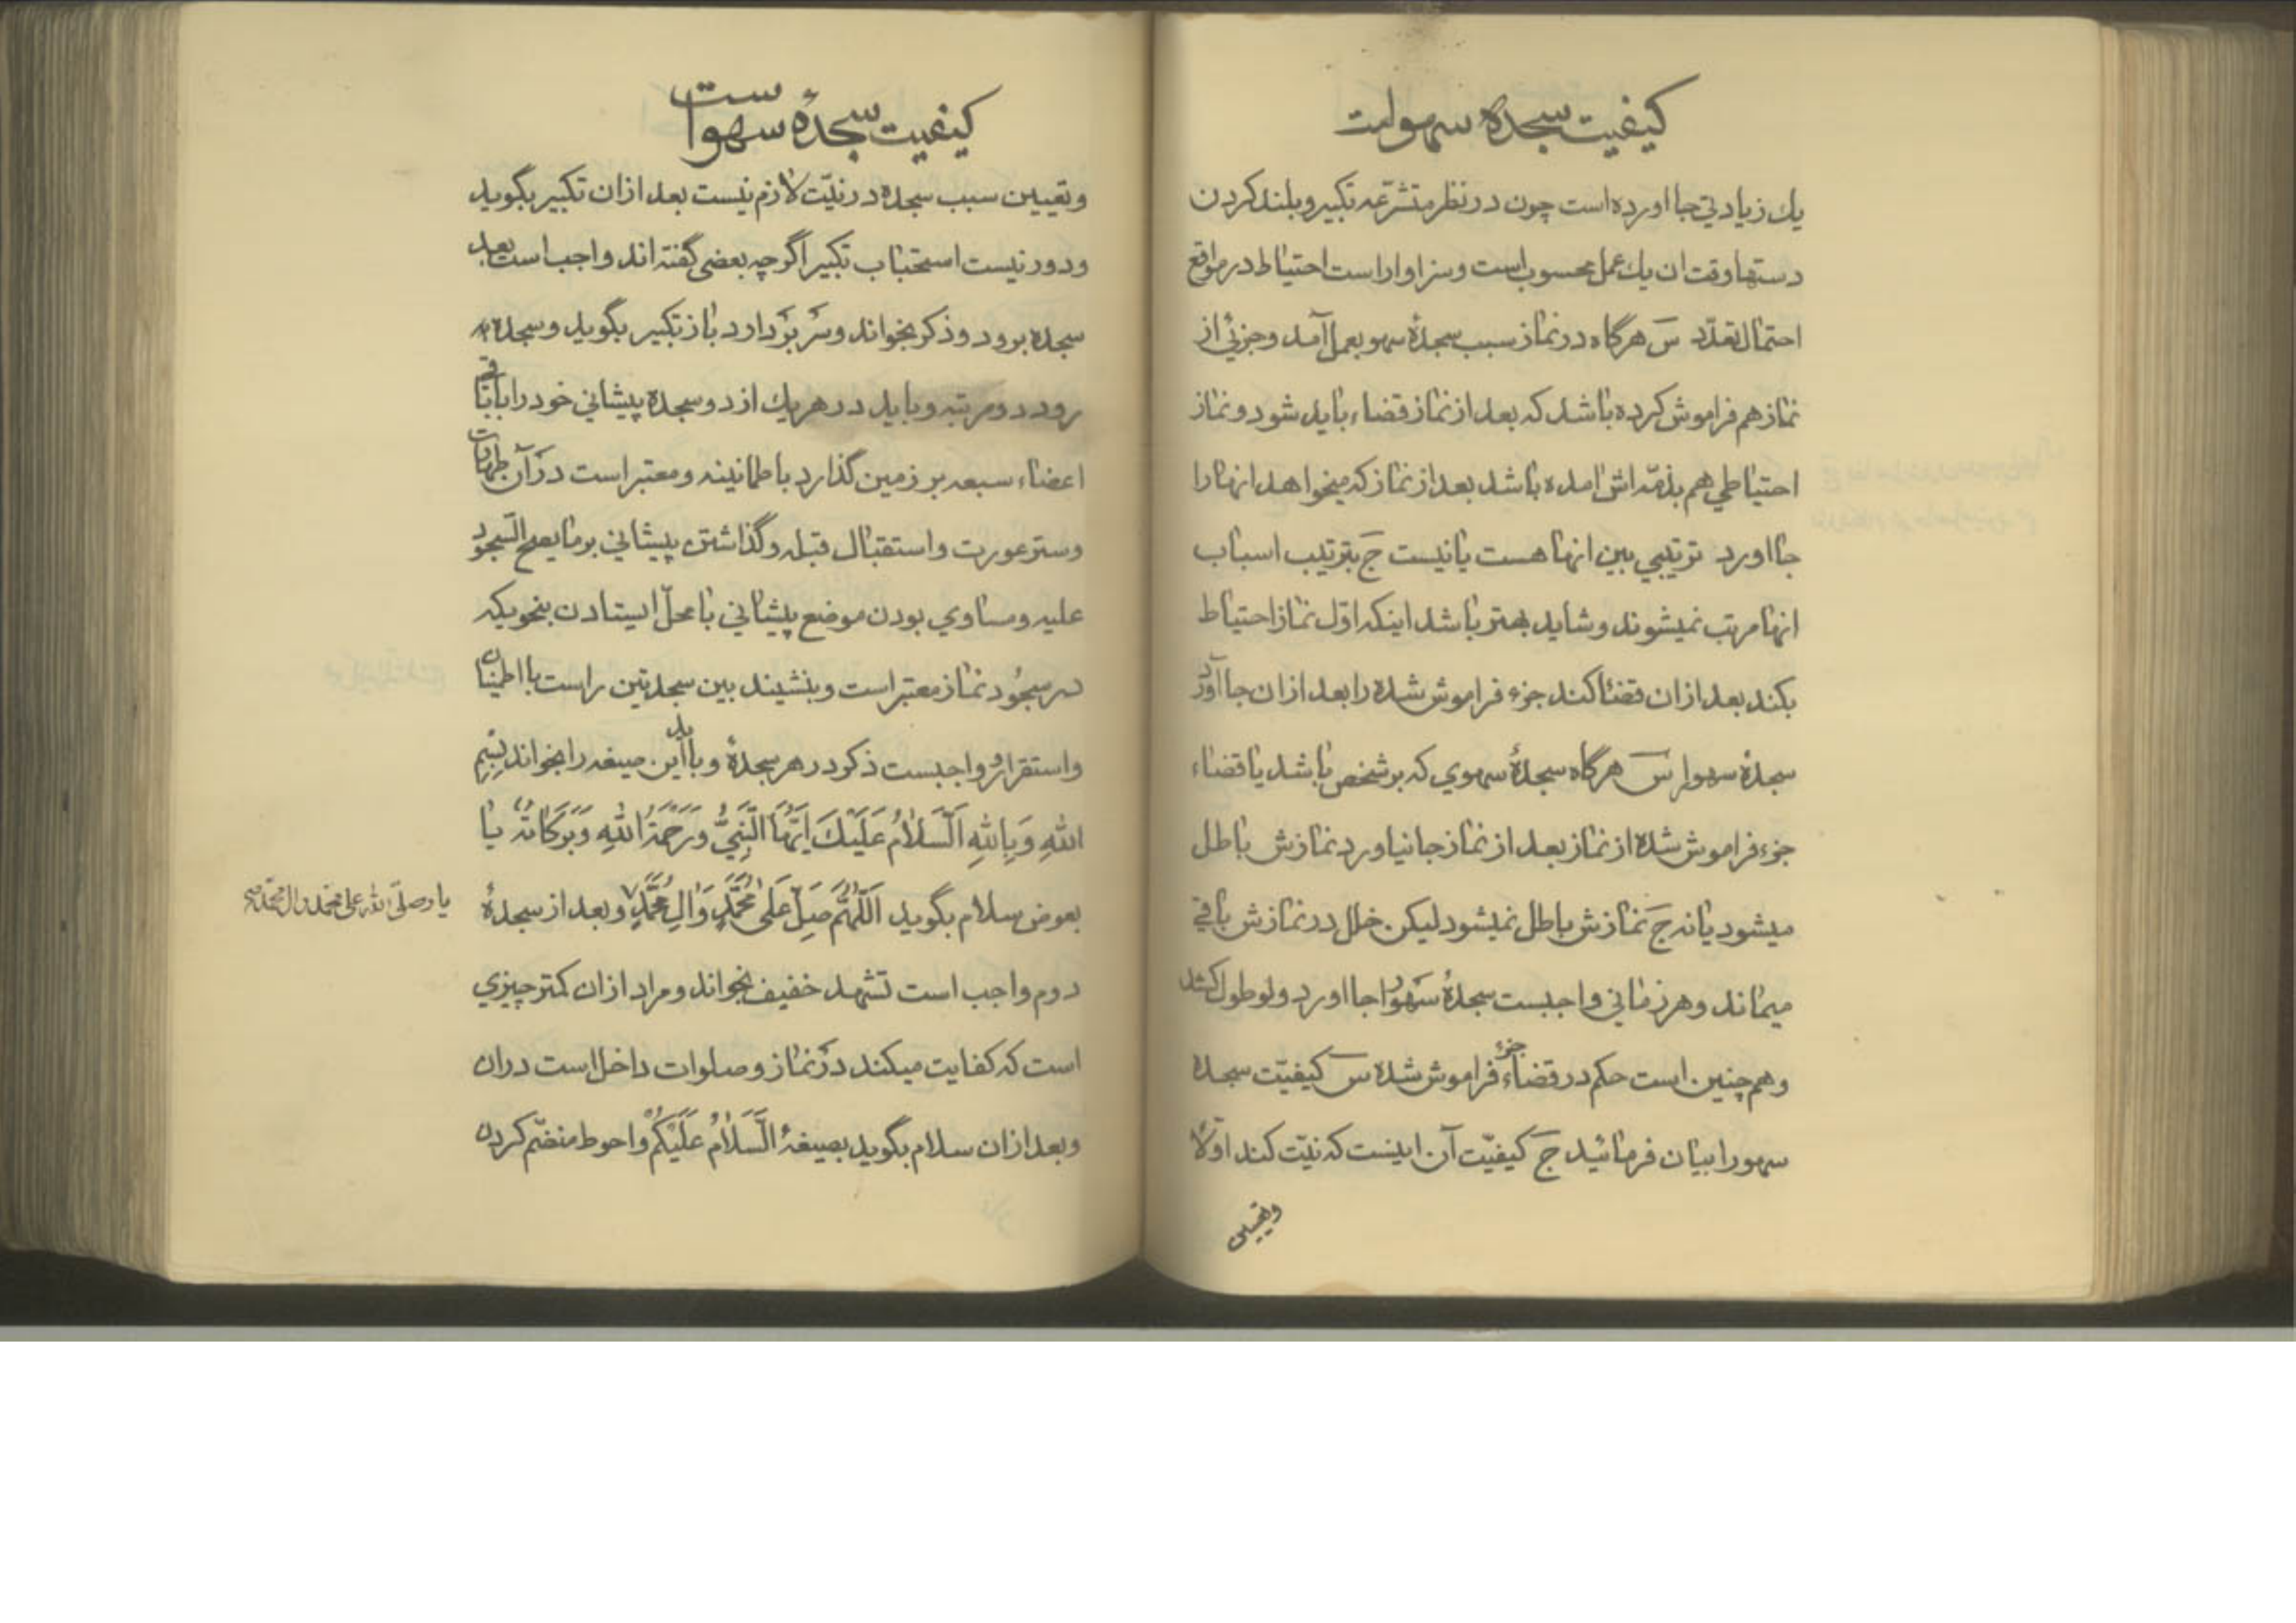 کیفیت سجدهٔ سهو است
یك زیادتي جا اورده است چون در نظر متشرّعه تکبیر و بلند کردن
دستها وقت ان یك عمل محسوب است و سزاوار است احتیاط در مواقع
احتمال تعدّد سَ هرگاه در نماز سبب سجدهٔ سهو بعمل آمد و جزئي از
نماز هم فراموش کرده باشد که بعد از نماز قضاء باید شود و نماز
احتیاطي هم بذمّه اش امده باشد بعد از نماز که میخواهد انها را
جا اورد ترتیبي بین انها هست یا نیست جَ بترتیب اسباب
انها مرتب نمیشوند و شاید بهتر باشد اینکه اوّل نماز احتیاط
بکند بعد از ان قضا کند جزء فراموش شده را بعد از ان جا آورد
سجدهٔ سهو را سَ هرگاه سجدهٔ سهوي که بر شخص باشد یا قضاء
جزء فراموش شده از نماز بعد از نماز جا نیاورد نمازش باطل
میشود یا نه جَ نمازش باطل نمیشود لیکن خلل در نمازش باقي
میماند و هر زماني واجبست سجدهٔ سَهو را جا اورد ولو طول کشد
و هم چنین است حکم در قضاء جزء فراموش شده سَ کیفیّت سجدهٔ
سهو را بیان فرمائید جَ کیفیّت آن اینست که نیّت کند اوّلا
وتعیین
کیفیت سجدهٔ سهو است
وتعیین سبب سجده در نیّت لازم نیست بعد از ان تکبیر بگوید
و دور نیست استحباب تکبیر اگرچه بعضی گفته اند واجب است بعد
سجده برود و ذکر بخواند و سَر بَردارد باز تکبیر بگوید و سجده
رود دو مرتبه و باید در هر یك از دو سجده پیشاني خود را با باقي
اعضاء سبعه بر زمین گذارد با طمانینه و معتبر است در آن طهارت
و ستر عورت و استقبال قبله و گذاشتن پیشاني بر ما یصح السّجود
علیه و مساوي بودن موضع پیشاني با محلّ ایستادن بنحویکه
در سجُود نماز معتبر است و بنشیند بین سجدتین راست با اطمینان
و استقرار و واجبست ذکر در هر سجدهٔ و باید این صیغه را بخواند بِسْمِ
اللهِ وَ بِاللهِ اَلسَّلامُ عَلَیْكَ اَیُّهَا النَّبِيُّ وَ رَحْمَةُ اللهِ وَ بَرَکاتُهُ یا
بعوض سلام بگوید اَللّٰهُمَّ صَلِّ عَلی مُحَمَّدٍ وَ الِ مُحَمَّدٍ و بعد از سجدهٔ
یا و صلّی الله علی محمّد و ال محمّد
دوم واجب است تشهد خفیف بخواند و مراد از ان کمتر چیزي
است که کفایت میکند در نماز و صلوات داخل است در ان
و بعد از ان سلام بگوید بصیغهٔ السَّلامُ عَلَیْکُمْ و احوط منضّم کردن